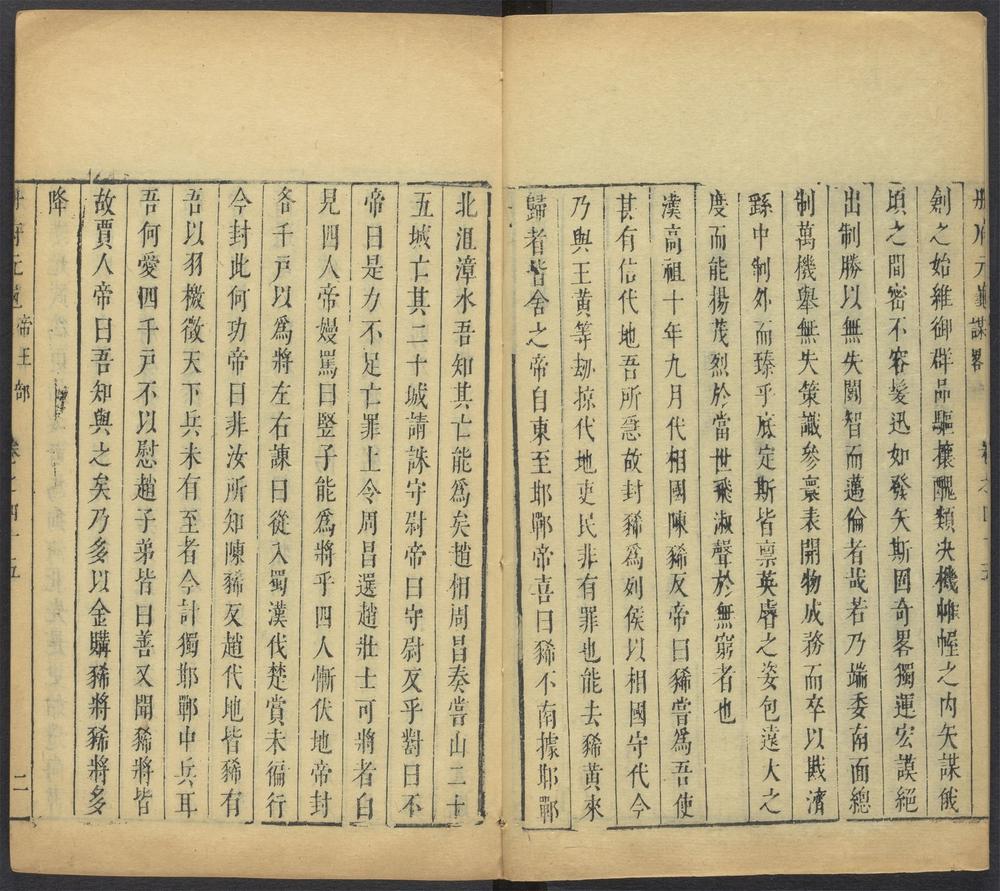 冊府元龜 謀畧 卷之四十五
創之始維御群品驅攘醜類決機帷幄之内矢謀俄
頃之間密不容髮迅如發矢斯固奇畧獨運宏謨絕
出制勝以無失鬪智而邁倫者哉若乃端委南面總
制萬機舉無失策識參寰表開物成務而卒以戡濟
繇中制外而臻乎底定斯皆禀英睿之姿包遠大之
度而能揚茂烈於當世飛淑聲於無窮者也
漢高祖十年九月代相國陳豨反帝曰豨嘗為吾使
甚有信代地吾所急故封豨為列侯以相國守代今
乃與王黃等劫掠代地吏民非有罪也能去豨黃來
歸者皆舍之帝自東至邯鄲帝喜曰豨不南據邯鄲
北沮漳水吾知其亡能為矣趙相周昌奏嘗山二十
五城亡其二十城請誅守尉帝曰守尉反乎對曰不
帝曰是力不足亡罪上令周昌選趙壯士可將者白
見四人帝嫚罵曰豎子能為將乎四人慚伏地帝封
各千戸以為將左右諫曰從入蜀漢伐楚賞未徧行
今封此何功帝曰非汝所知陳豨反趙代地皆豨有
吾以羽檄徵天下兵未有至者今計獨邯鄲中兵耳
吾何愛四千戸不以慰趙子弟皆曰善又聞豨將皆
故賈人帝曰吾知與之矣乃多以金購豨將豨將多
降
冊府元龜 帝王部 卷之四十五 二